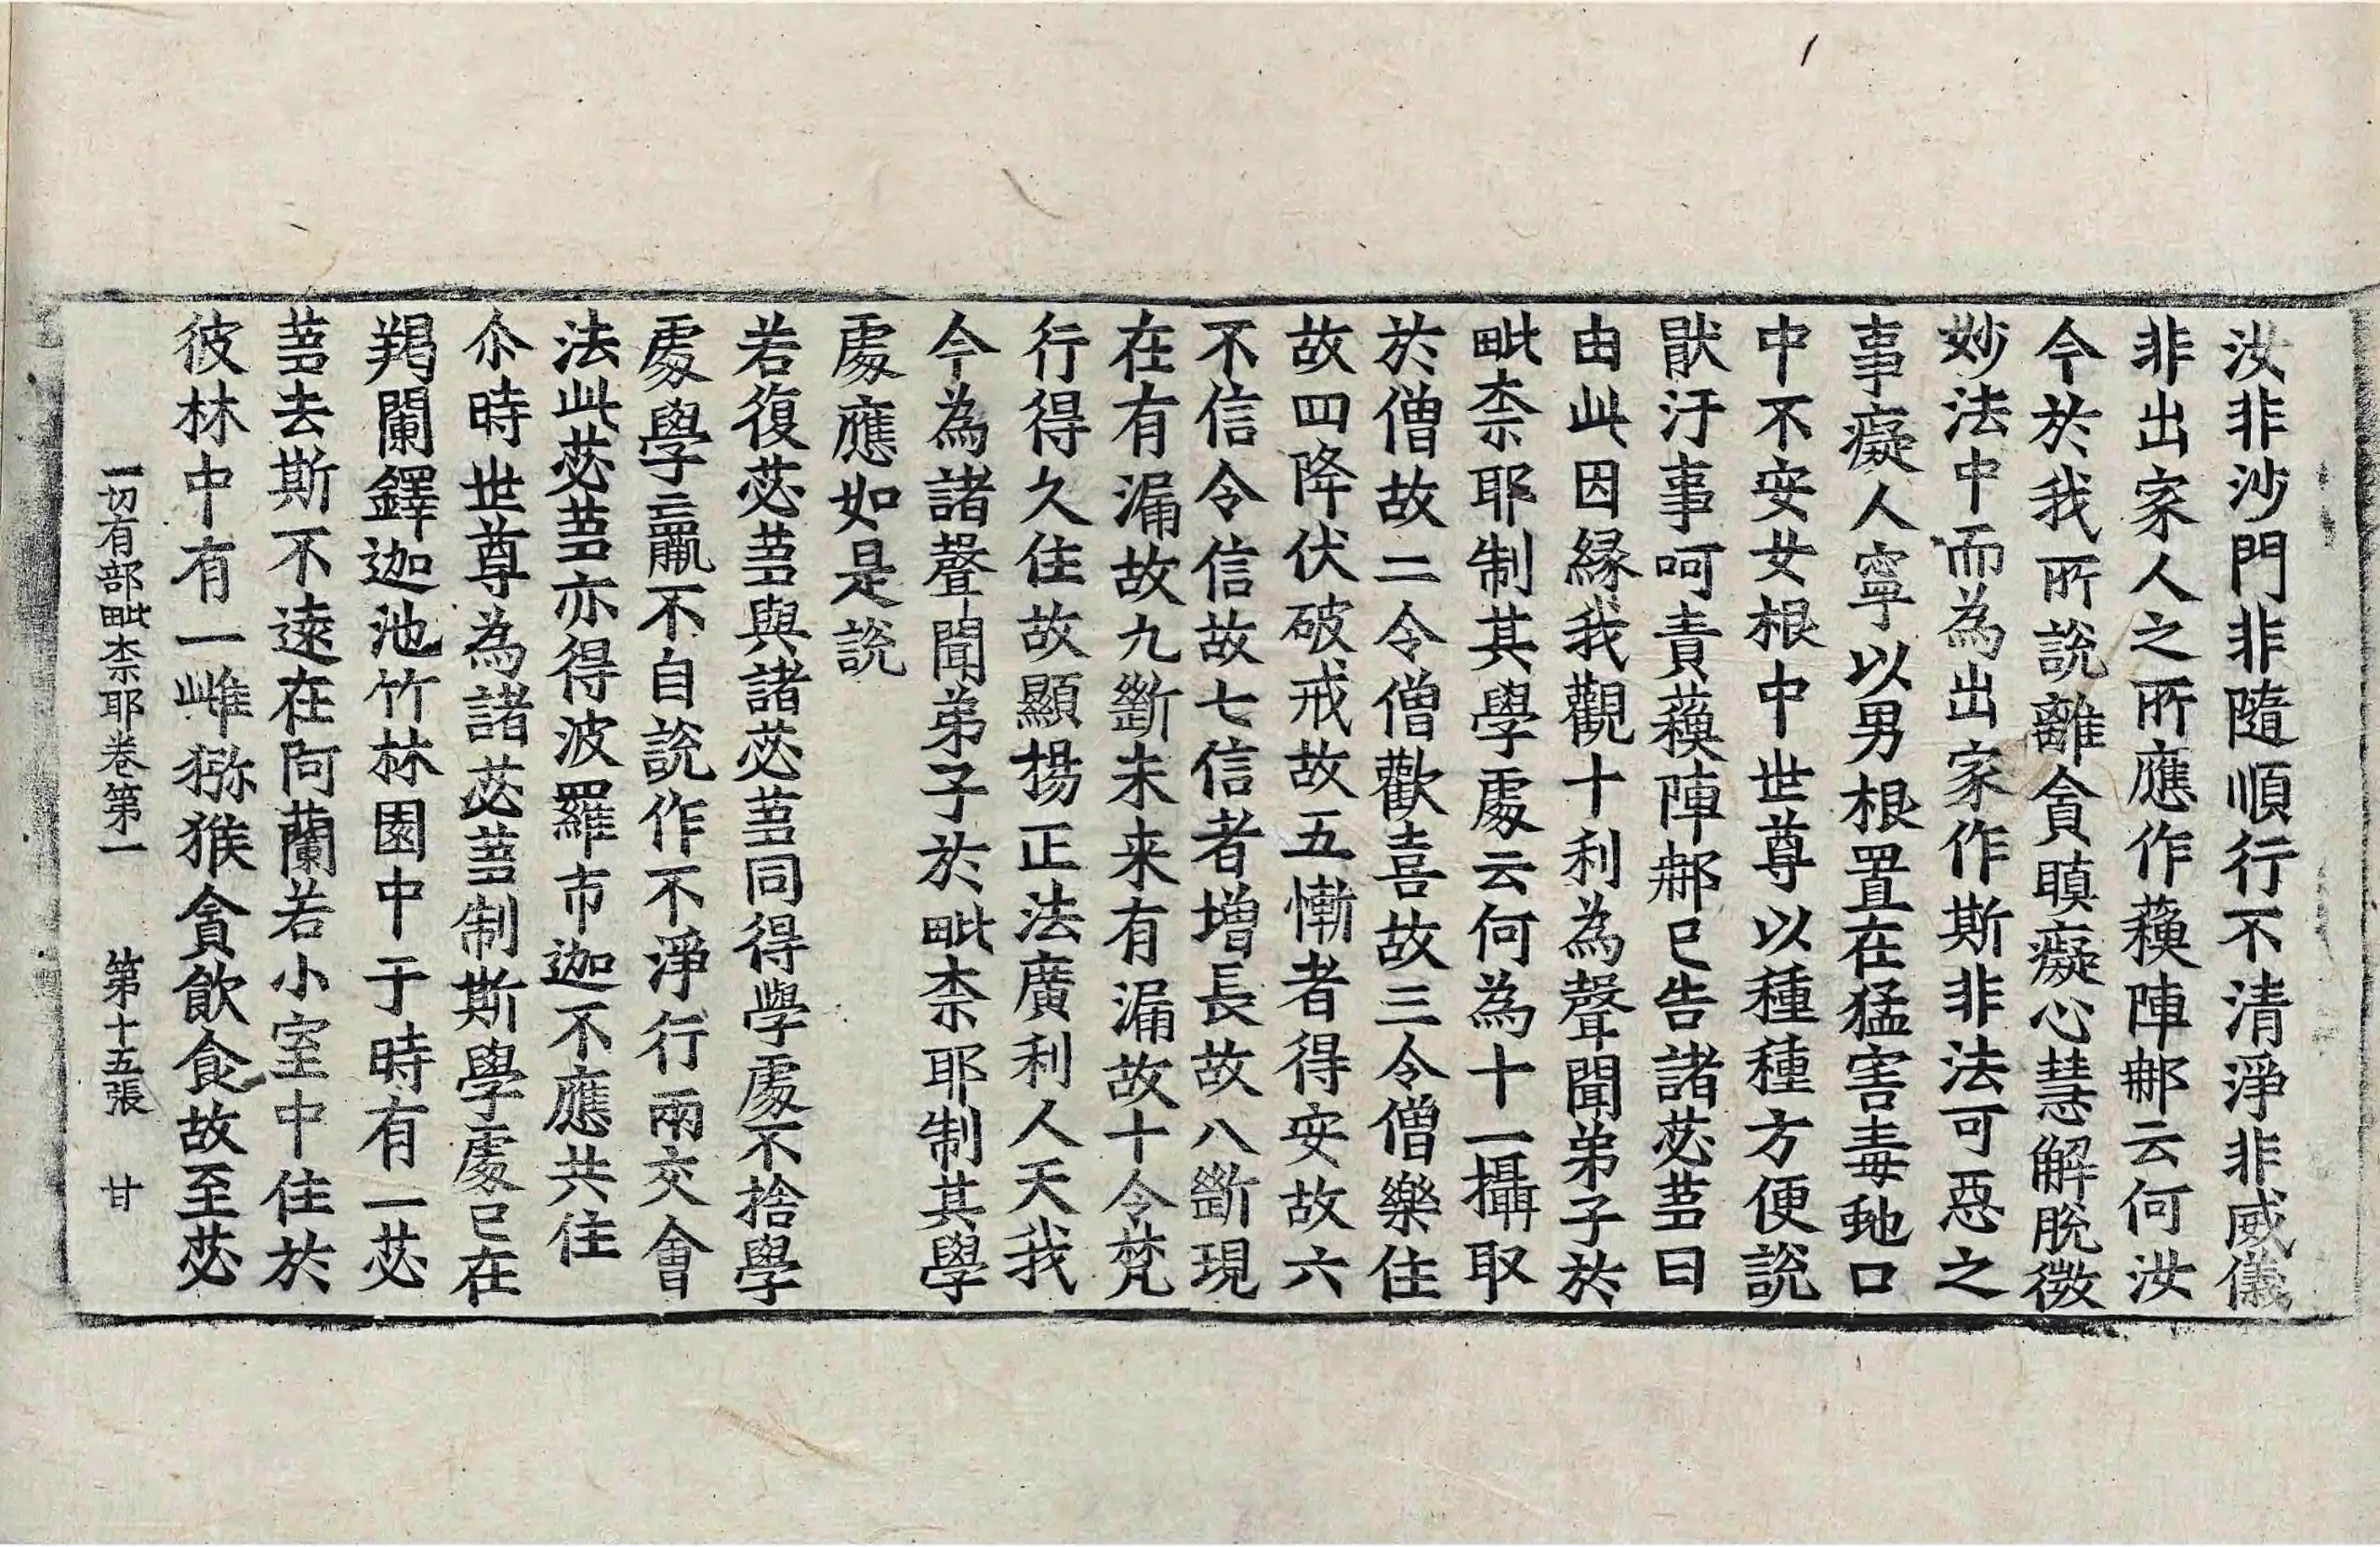 汝非沙門非隨順行不清淨非威儀
非出家人之所應作蘇陣那云何汝
今於我所說離貪瞋癡心慧解脫微
妙法中而為出家作斯非法可惡之
事癡人寧以男根置在猛害毒虵口
中不安女根中世尊以種種方便說
猒汙事呵責蘇陣那已告諸苾芻曰
由此因緣我觀十利為聲聞弟子於
毗柰耶制其學處云何為十一攝取
於僧故二令僧歡喜故三令僧樂住
故四降伏破戒故五慚者得安故六
不信令信故七信者增長故八斷現
在有漏故九斷未来有漏故十令梵
行得久住故顯揚正法廣利人天我
今為諸聲聞弟子於毗柰耶制其學
處應如是說
若復苾芻與諸苾芻同得學處不捨學
處學羸不自說作不淨行兩交會
法此苾芻亦得波羅市迦不應共住
尒時世尊為諸苾芻制斯學處已在
羯闌鐸迦池竹林園中于時有一苾
芻去斯不遠在阿蘭若小室中住於
彼林中有一雌獼猴貪飲食故至苾
一切有部毗柰耶卷第一 第十五張 甘